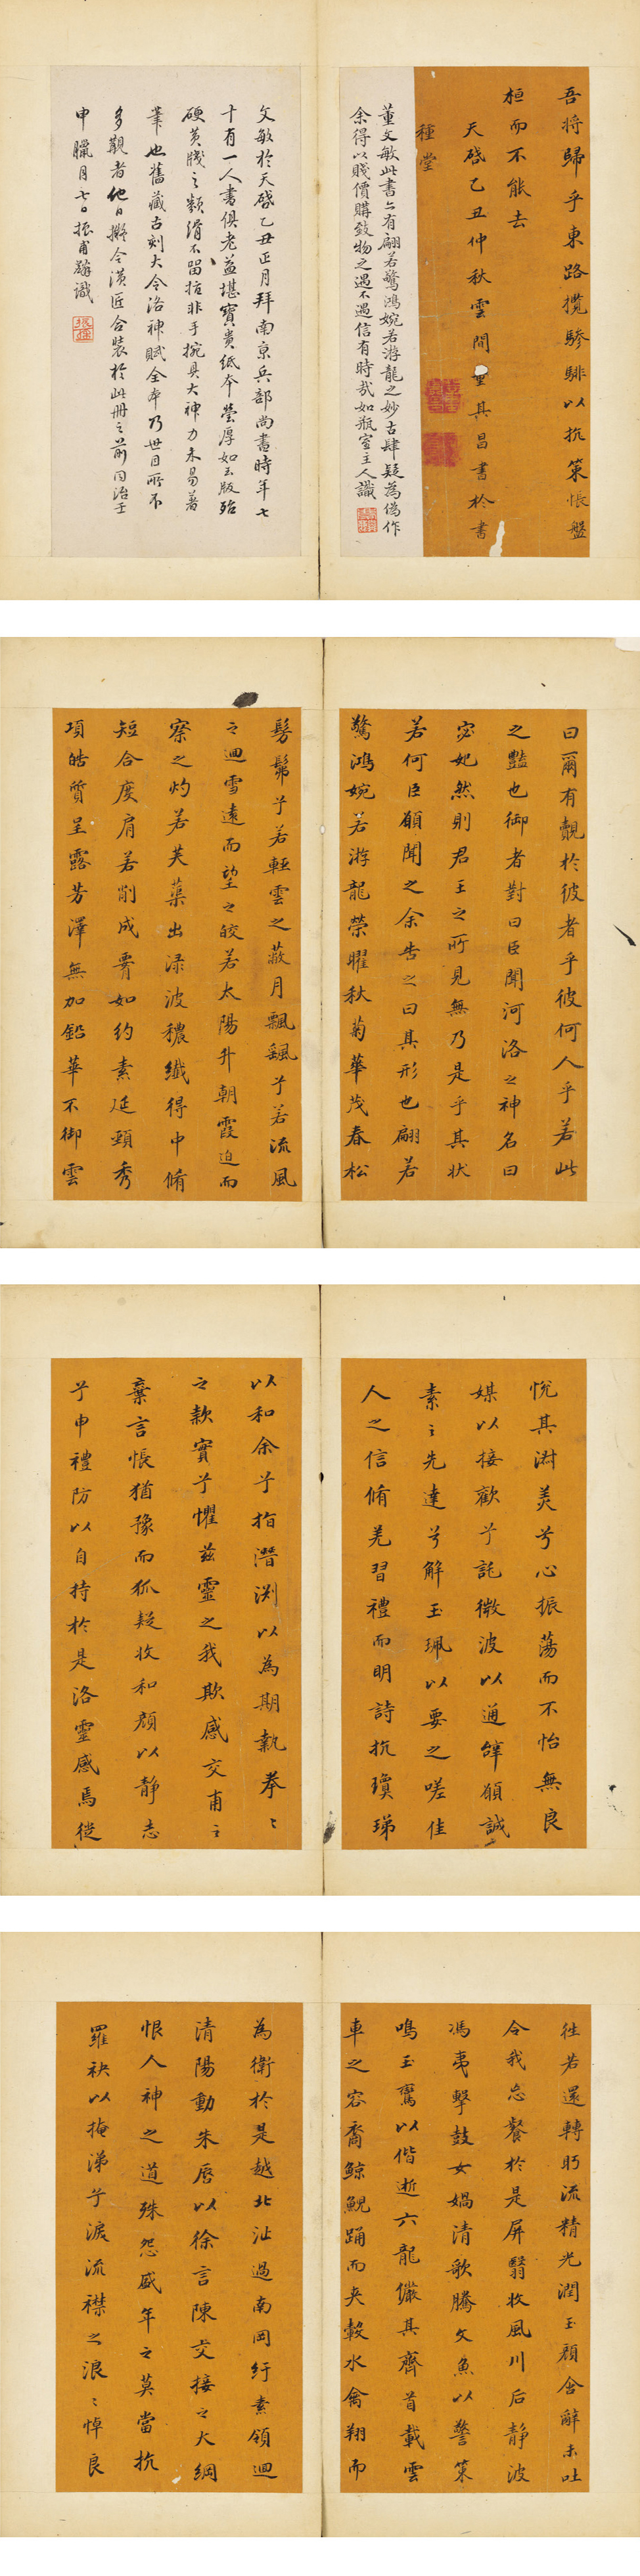 吾将歸乎東路攬騑騑以抗策悵盤
桓而不能去
天啓乙丑仲秋雲間董其昌書於書
種堂
董文敏此書亦有翩若驚鴻婉若游龍之妙古肆疑為偽作
余得以賤價購致物之遇不遇信有時哉如瓶室主人識
文敏於天啓乙丑正月拜南京兵部尚書時年七
十有一人書俱老益堪寶貴紙本瑩厚如玉版殆
硬黃牋之類滑不留揸非手捥具大神力未易著
筆也舊藏古刻大令洛神賦全本乃世目所不
多觀者他日擬令潢匠合裝於此冊之前同治壬
申臘月七日振甫辭識
曰爾有覿於彼者乎彼何人乎若此
之豔也御者對曰臣聞河洛之神名曰
宓妃然則君王之所見無乃是乎其狀
若何臣願聞之余告之曰其形也翩若
驚鴻婉若游龍榮曜秋菊華茂春松
髣髴兮若輕雲之蔽月飄颻兮若流風
之迴雪遠而望之皎若太陽升朝霞迫而
察之灼若芙蕖出淥波穠纖得中脩
短合度肩若削成署如約素延頸秀
項皓質呈露芳澤無加鉛華不御雲
悅其淑美兮心振蕩而不怡無良
媒以接歡兮託微波以通辭願誠
素之先達兮解玉珮以要之嗟佳
人之信脩羌習禮而明詩抗瓊珶
以和余兮指潛淵以為期執拳〻
之款實兮懼茲靈之我欺感交甫之
棄言悵猶豫而狐疑收和顏以靜志
兮申禮防以自持於是洛靈感焉徙
往若還轉眄流精光潤玉顏含辭未吐
令我忘餐於是屏翳收風川后靜波
馮夷擊鼓女媧清歌騰文魚以警策
鳴玉鸞以偕逝六龍儼其齊首載雲
車之容裔鯨鯢踊而夾轂水禽翔而
為衛於是越北沚過南岡紆素領迴
清陽動朱唇以徐言陳交接之大綱
恨人神之道殊怨盛年之莫當抗
羅袂以掩涕兮淚流襟之浪〻悼良